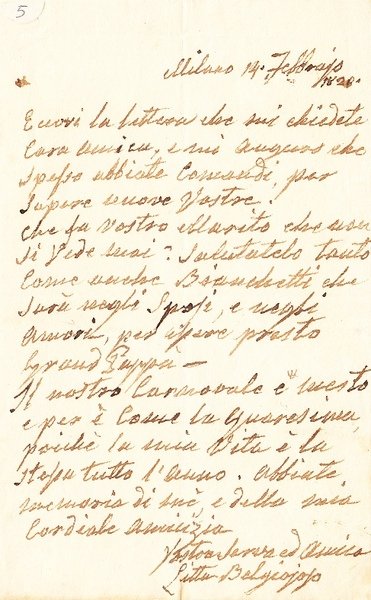 5
Milano 14. Febbrajo
1820.
Eccovi la lettera che mi chiedete
Cara Amica, e mi auguro che
spesso abbiate Comandi, per
sapere nuove Vostre.
Che fa Vostro Marito che non
si Vede mai? Salutatelo tanto
Come anche Bianchetti che
sarà negli Sposi, e negli
Amori, per essere presto
Grand Pappà —
Il nostro Carnovale è mesto
e per è Come la Quaresima,
poichè la mia Vita è la
stessa tutto l'anno. Abbiate
memoria di mè, e della mia
Cordiale Amicizia
Vostra Serva ed Amica
Litta Belgiojoso